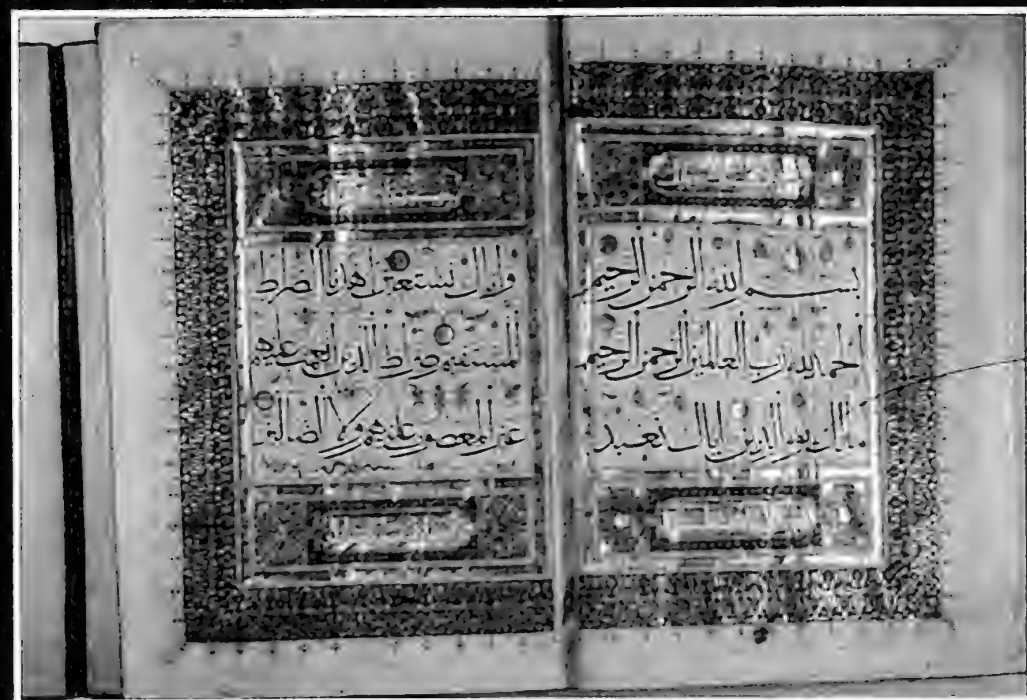 بسم الله الرحمن الرحيم
الحمد لله رب العالمين الرحمن الرحيم
ملك يوم الدين اياك نعبد
واياك نستعين اهدنا الصراط
المستقيم صراط الذين انعمت عليهم
غير المغضوب عليهم ولا الضالين